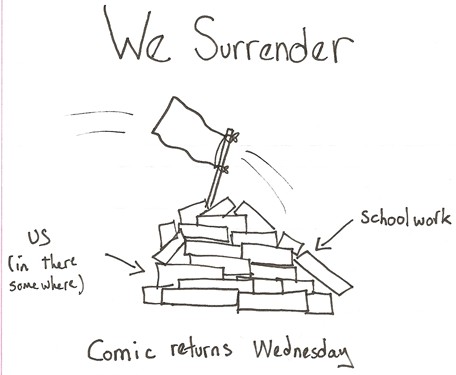 We Surrender
schoolwork
US
(in there
somewhere)
Comic returns Wednesday